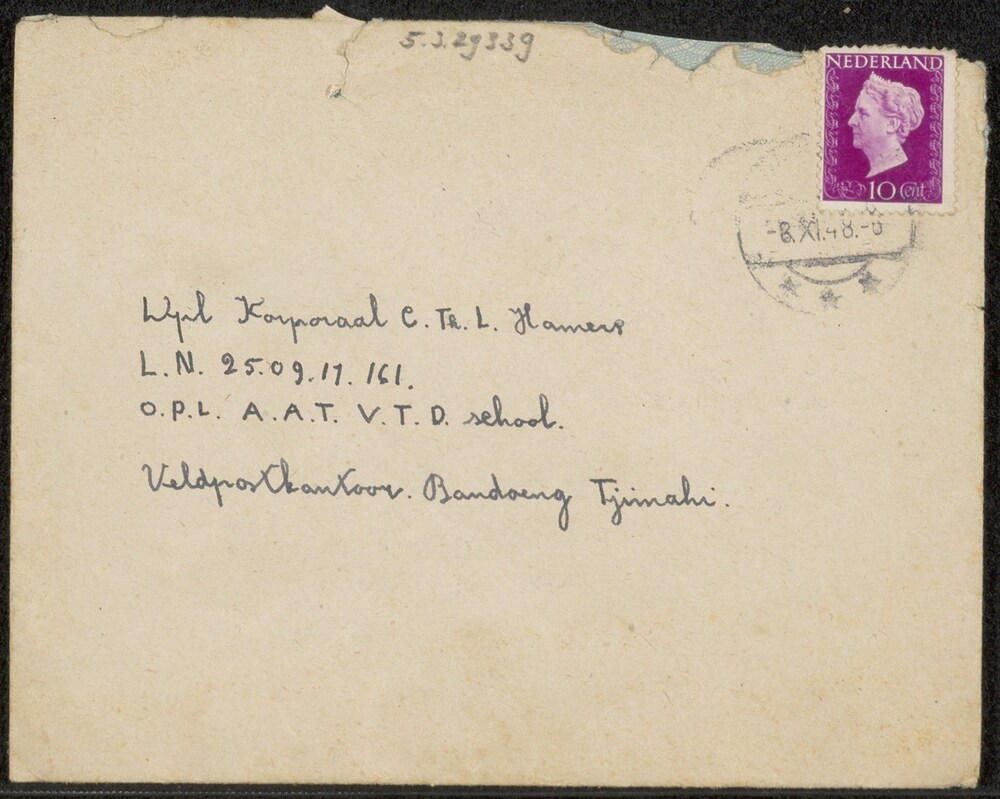 5.3.29339
NEDERLAND
10 Cent
-8.XI.48.-
Wpl Korporaal C. Th. L. Hamers
L.N. 25.09.17.161.
O.P.L. A.A.T. V.T.D. school.
Veldpostkantoor. Bandoeng Tjimahi.